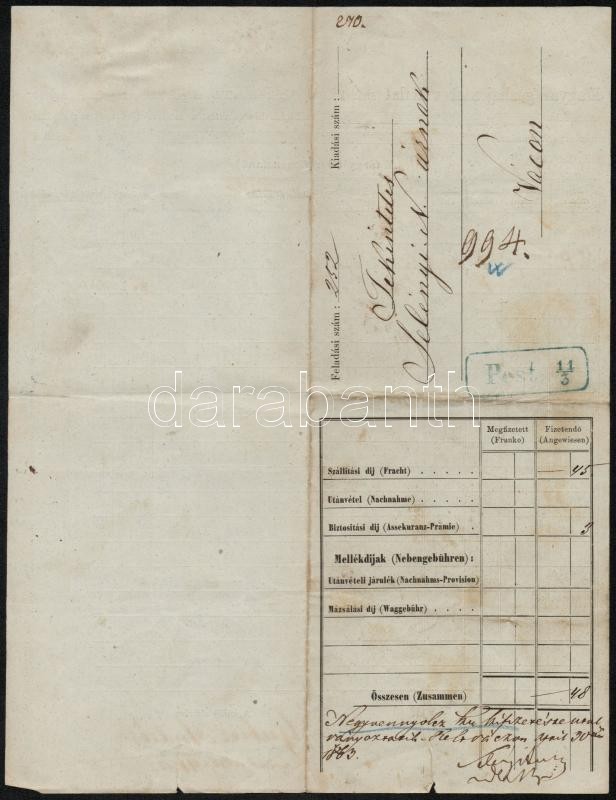 270.
Kiadási szám :
Feladási szám : 252
Tekintetes
Selényi N. úrnak
994.
Vácon
Pest 11/3
darabanth
Megfizetett (Franko)
Fizetendő (Angewiesen)
Szállítási díj (Fracht) . . . . . — 45
Utánvétel (Nachnahme) . . . .
Biztosítási díj (Assekuranz-Prämie) . 3
Mellékdíjak (Nebengebühren) :
Utánvételi járulék (Nachnahms-Provision)
Mázsálási díj (Waggebühr) . . . .
Összesen (Zusammen) — 48
Negyvennyolcz
1863.